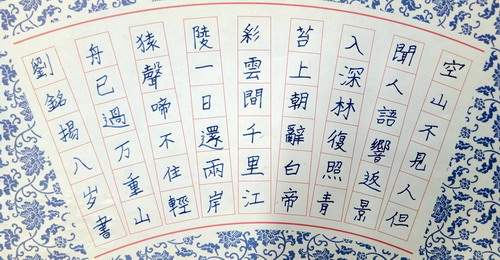 空山不見人但
聞人語響返景
入深林復照青
苔上朝辭白帝
彩雲間千里江
陵一日還兩岸
猿聲啼不住輕
舟已過万重山
劉銘揚八岁書